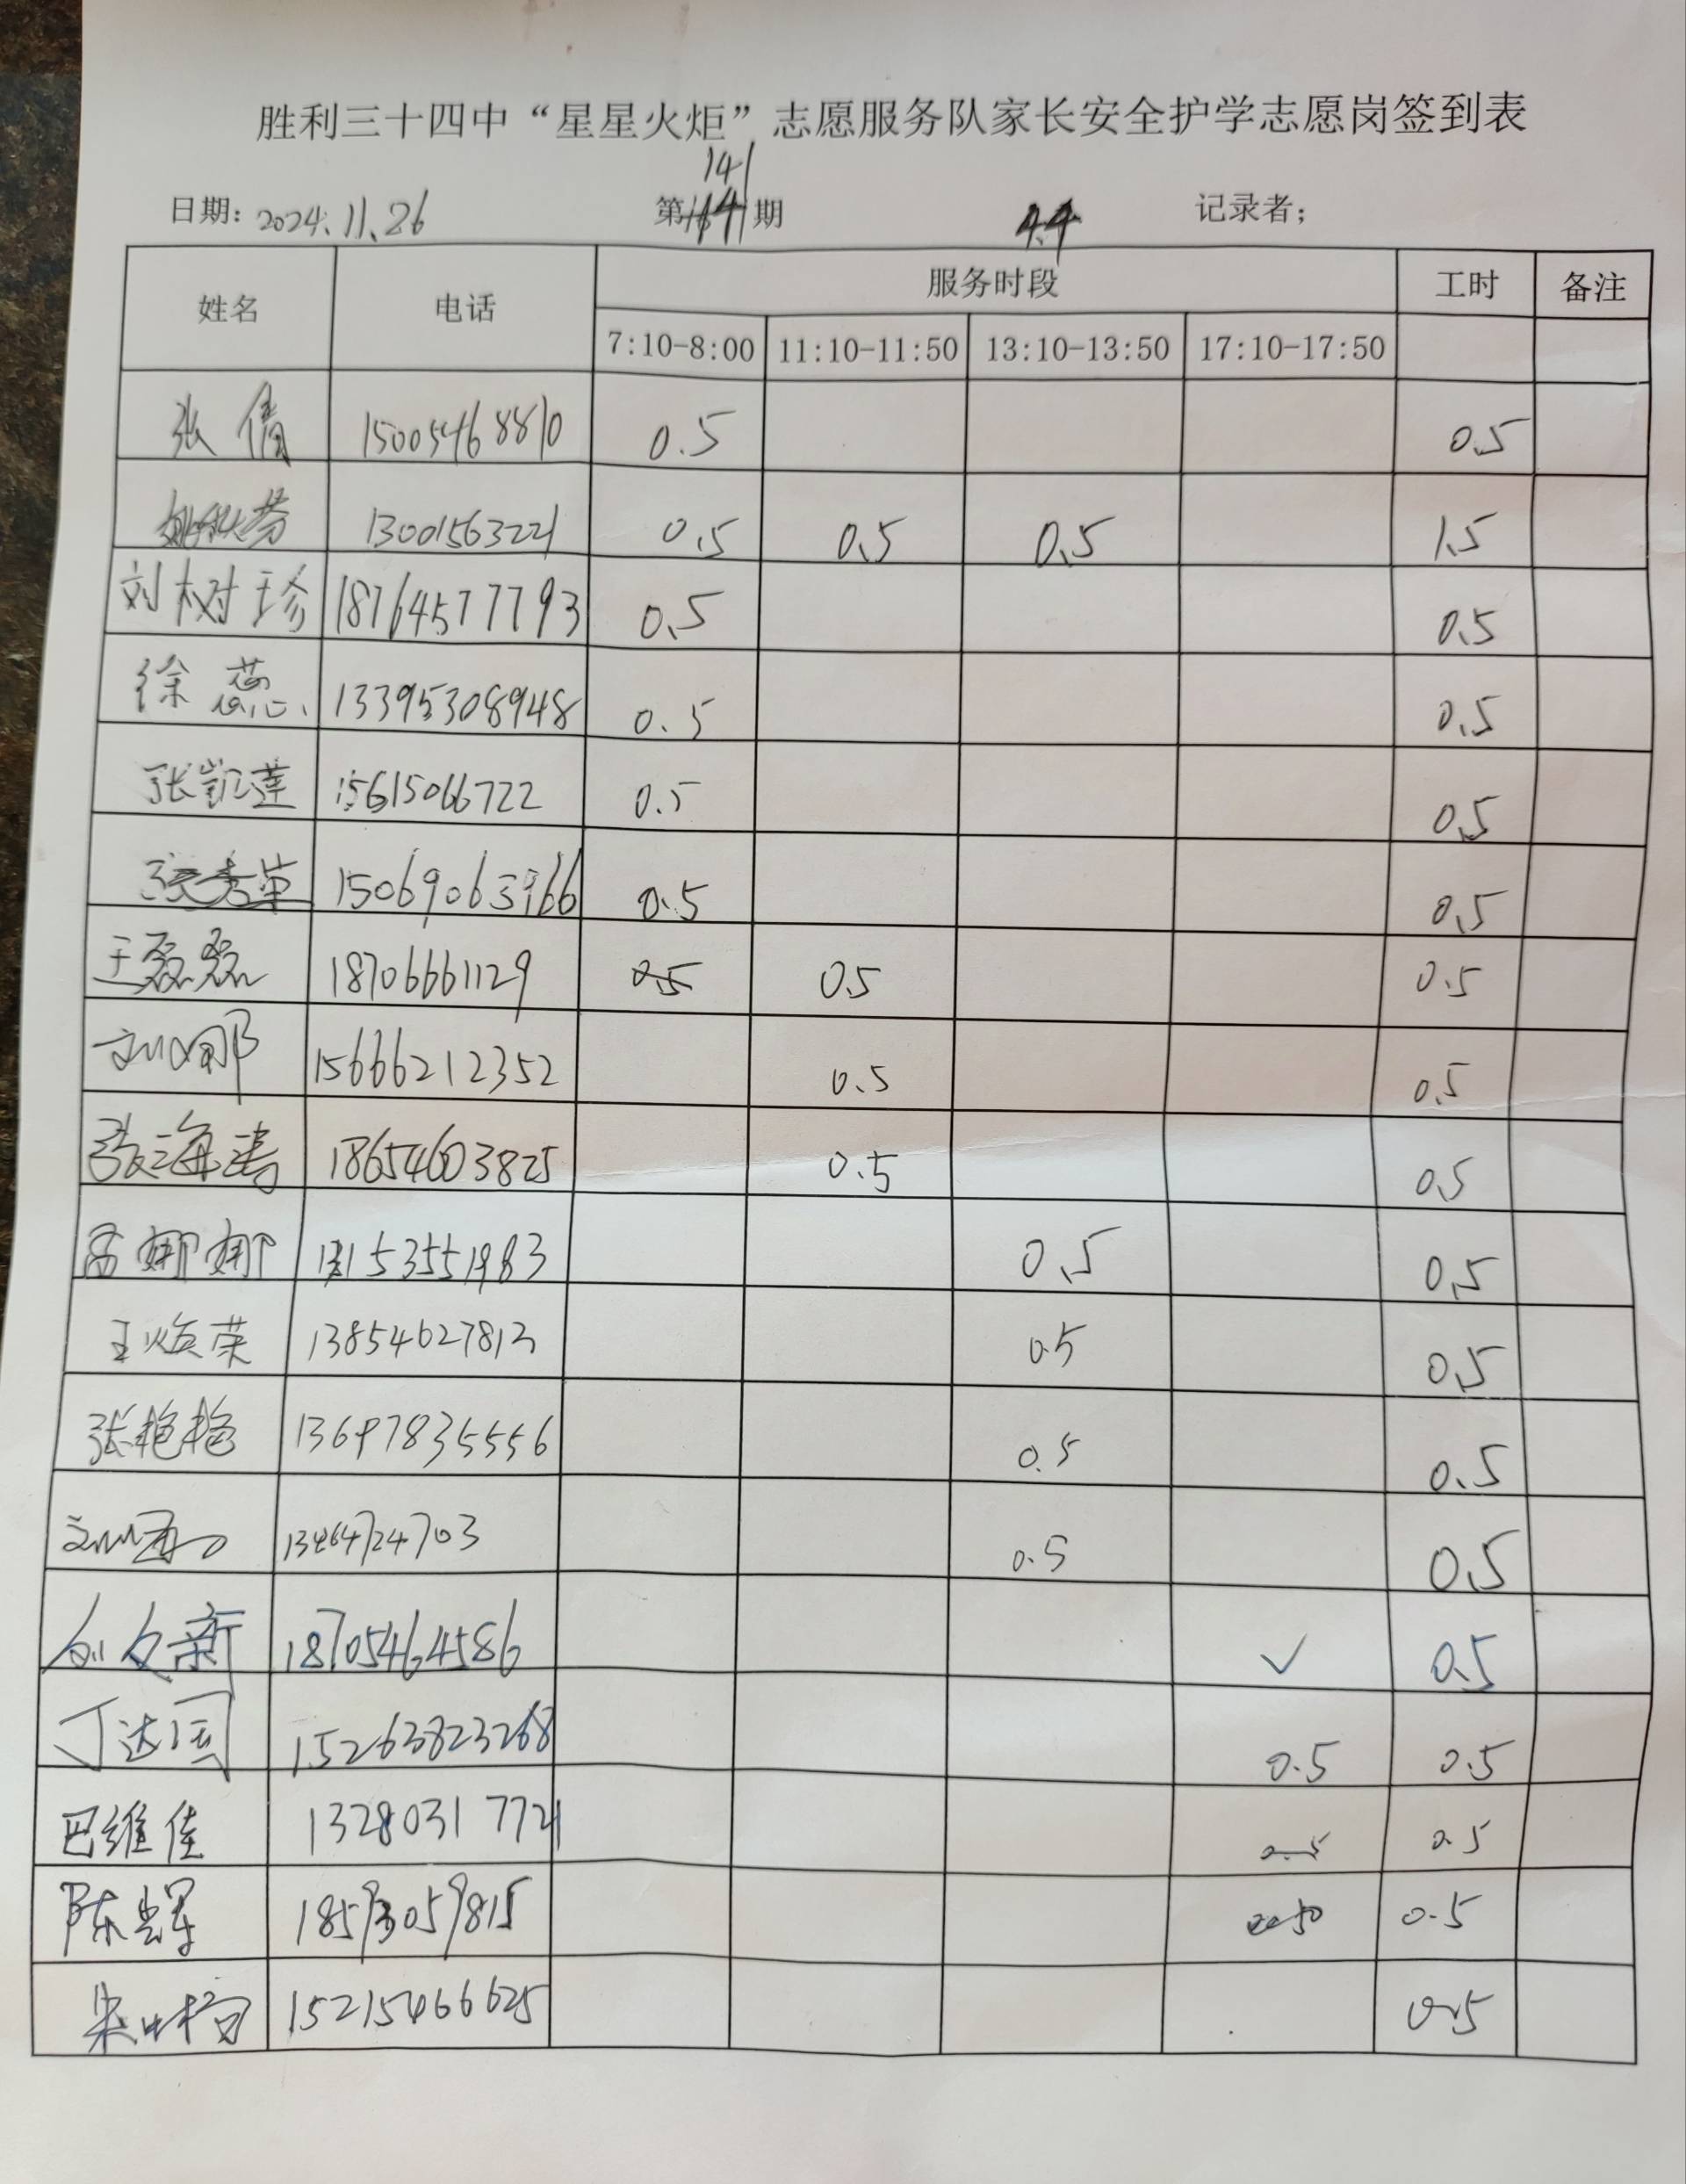 胜利三十四中“星星火炬”志愿服务队家长安全护学志愿岗签到表
141
日期: 2024.11.26 第 期 记录者;
姓名 电话 服务时段 工时 备注
7:10-8:00 11:10-11:50 13:10-13:50 17:10-17:50
张倩 15005468810 0.5 0.5
13001563221 0.5 0.5 0.5 1.5
刘树珍 18764577793 0.5 0.5
徐蕊 13395308948 0.5 0.5
张凯莲 15615066722 0.5 0.5
0.5 0.5
王磊磊 18706661129 0.5 0.5 0.5
刘娜 15666212352 0.5 0.5
张海涛 18654603825 0.5 0.5
孟娜娜 0.5 0.5
王焕荣 13854627813 0.5 0.5
张艳艳 0.5 0.5
0.5 0.5
18705464586 ✓ 0.5
丁达国 15263823268 0.5 0.5
巴维佳 13280317721 0.5 0.5
陈辉 0.5
15215466625 0.5